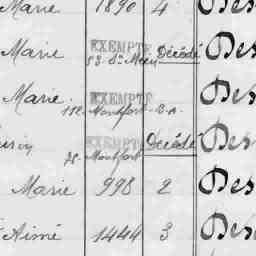 Marie 1890 4 Des
Marie EXEMPTÉ Décédé Des
53 St Méen
Marie EXEMPTÉ Des
112 Montfort B.A.
EXEMPTÉ Décédé Des
78 Montfort
Marie 998 2 Des
Aimé 1444 3 Des